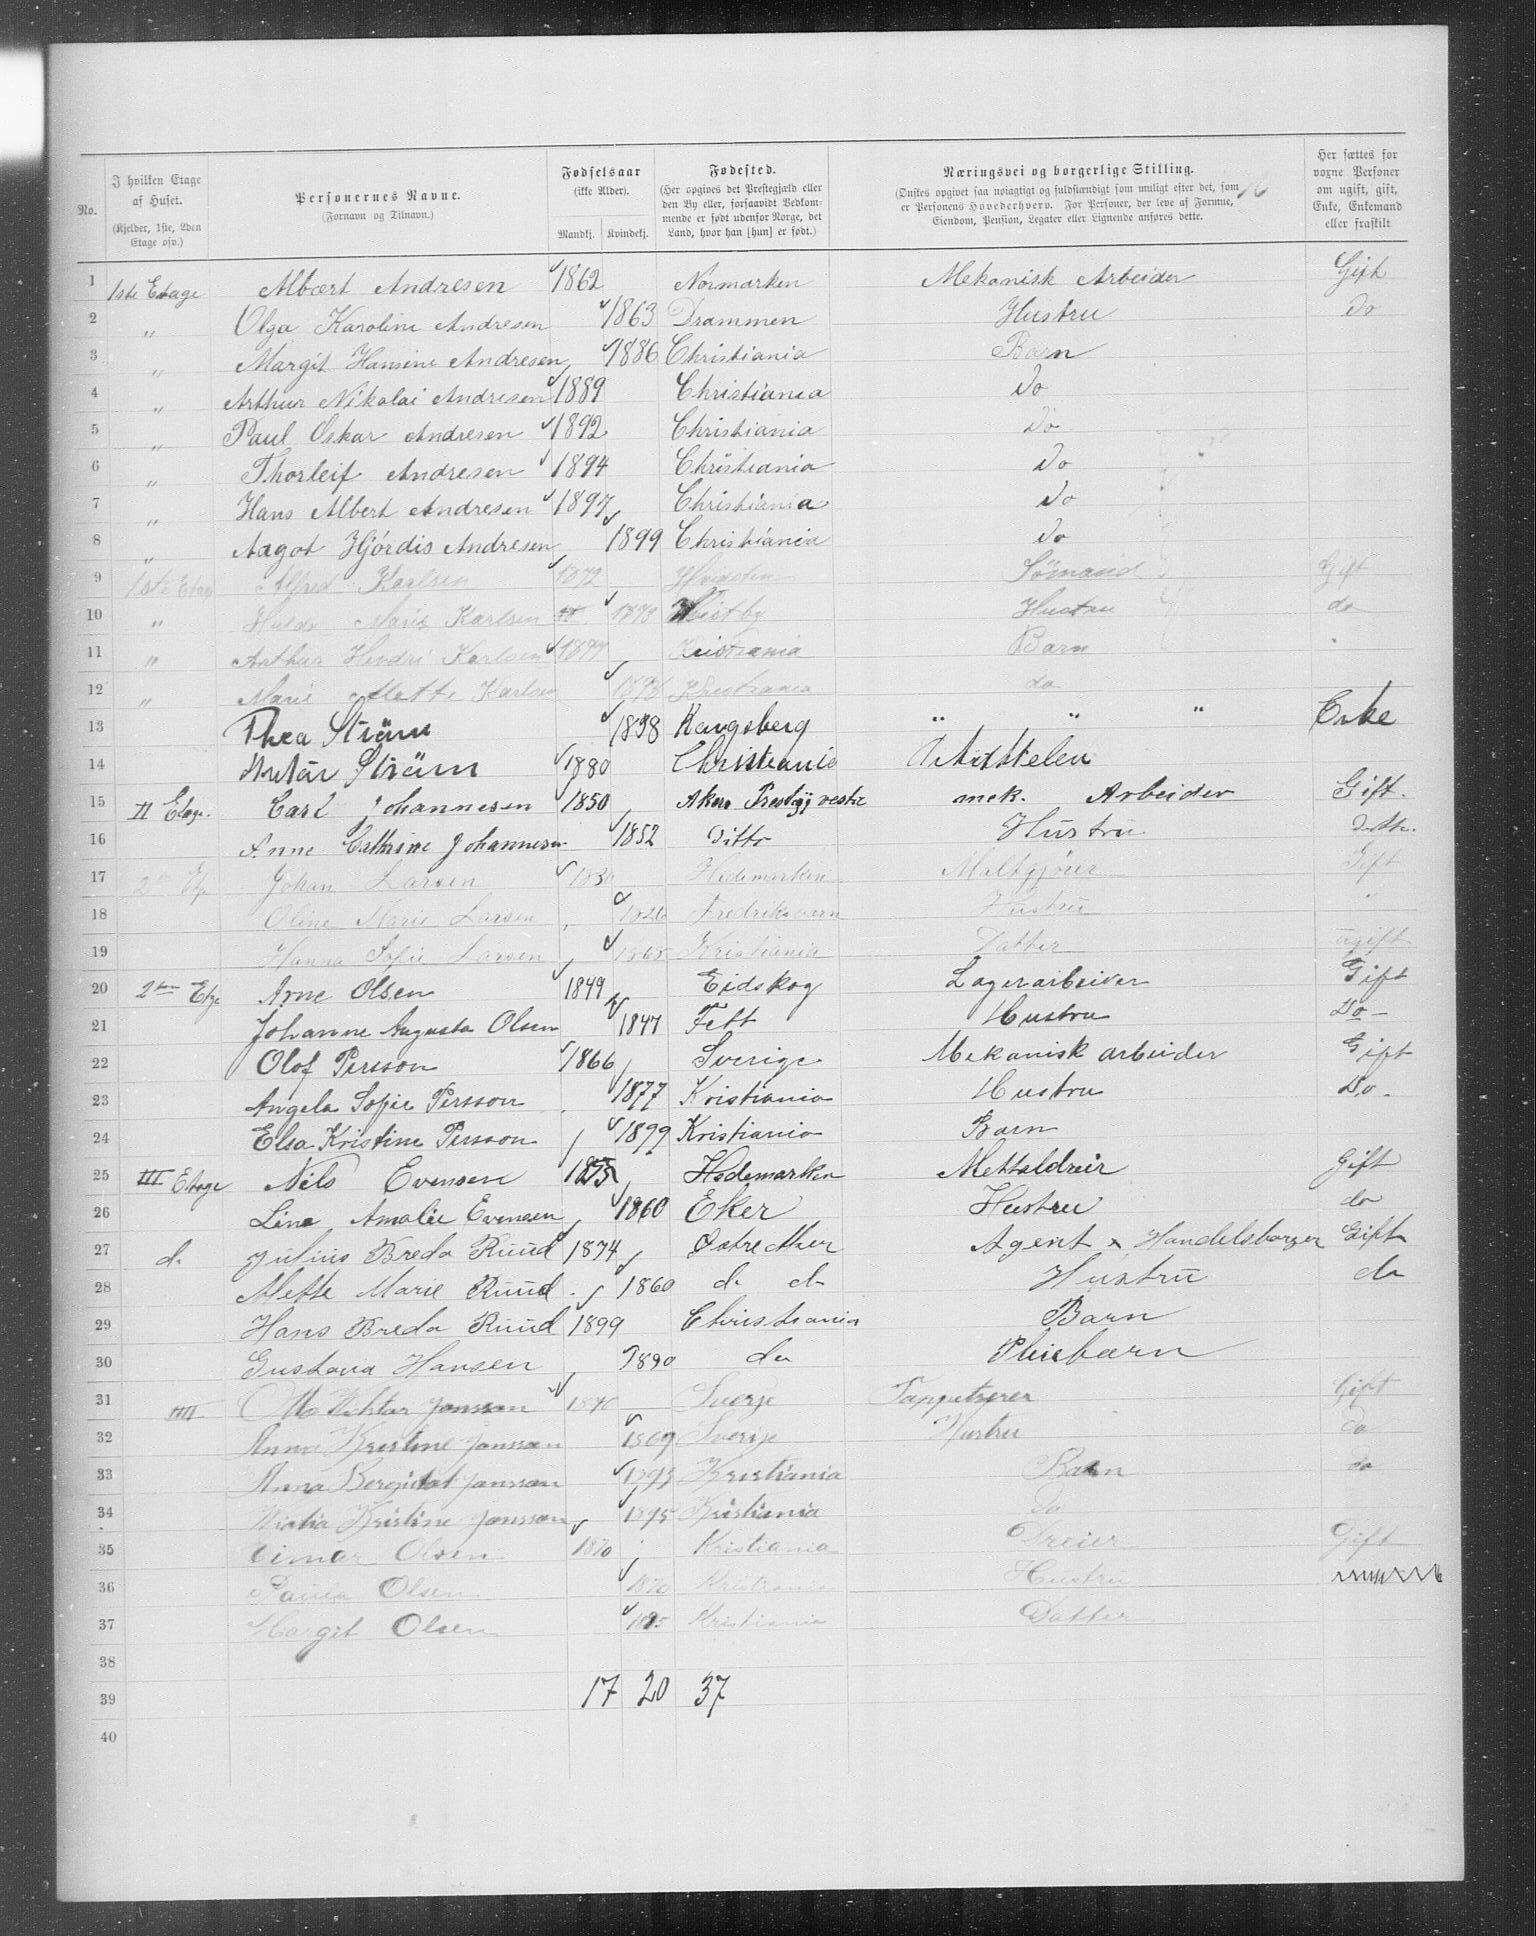 No.
I hvilken Etage af Huset. (Kjelder, 1ste, 2den Etage osv.)
Personernes Navne. (Fornavn og Tilnavn.)
Fødselsaar (ikke Alder). Mandkj. Kvindekj.
Fødested. (Her opgives det Prestegjæld eller den By eller, forsaavidt Vedkommende er født udenfor Norge, det Land, hvor han [hun] er født.)
Næringsvei og borgerlige Stilling. (Ønskes opgivet saa nøiagtigt og fuldstændigt som muligt efter det, som er Personens Hovederhverv. For Personer, der leve af Formue, Eiendom, Pension, Legater eller Lignende anføres dette.
Her sættes for voxne Personer om ugift, gift, Enke, Enkemand eller fraskilt
1 1ste Etage Albert Andresen 1862 Normarken Mekanisk Arbeider Gift
2 " Olga Karoline Andresen 1863 Drammen Hustru Do
3 " Margit Hansine Andresen 1886 Christiania Barn
4 " Arthur Nikolai Andresen 1889 Christiania Do
5 " Paul Oskar Andresen 1892 Christiania Do
6 " Thorleif Andresen 1894 Christiania Do
7 " Hans Albert Andresen 1897 Christiania Do
8 " Aagot Hjördis Andresen 1899 Christiania Do
9 1ste Etage Alfred Karlsen 1872 Hvidsten Sömand Gift
10 " Hulda Marie Karlsen 1873 Hustru do
11 " Arthur Karlsen Kristiania Barn
12 " Marie Mette Karlsen Kristiania do
13 Thea Ström 1838 Kongsberg " " " Enke
14 Ström 1880 Christiania
15 II Etage. Carl Johannesen 1850 Aker mek. Arbeider Gift.
16 Anne Cathrine Johannesen 1852 Ditto Hustru Ditto.
17 2den Etg Johan Larsen 1830 Hedemarken Gift
18 Oline Marie Larsen 1826 Fredriksværn Hustru "
19 Hanna Sofie Larsen 1865 Kristiania Datter ugift
20 2den Etge Arne Olsen 1849 Eidskog Lagerarbeider Gift
21 Johanne Augusta Olsen 1847 Fett Hustru Do
22 Olof Persson 1866 Sverige Mekanisk arbeider Gift
23 Angela Sofie Persson 1877 Kristiania Hustru Do.
24 Elsa Kristine Persson 1899 Kristiania Barn
25 III Etage Nils Evensen Hedemarken Mettaldreir Gift
26 Line Amalie Evensen 1860 Eker Hustru do
27 d. Julius Breda Ruud 1874 Agent & Handelsborger Gift
28 Mette Marie Ruud 1860 d d Hustru do
29 Hans Breda Ruud 1899 Christiania Barn
30 Gustava Hansen 1890 do Pleiebarn
31 IIII Viktor Jonsson 1870 Sverje Tapetserer Gift
32 Anna Kristine Jonsson 1869 Sverije Hustru Do
33 Anna Jonsson 1893 Kristiania Barn do
34 Kristine Jonsson 1895 Kristiania Do
35 Olsen 1870 Kristiania Dreier Gift
36 Paula Olsen 1870 Kristiania Hustru
37 Margit Olsen 1895 Kristiania Datter
38
39 17 20 37
40